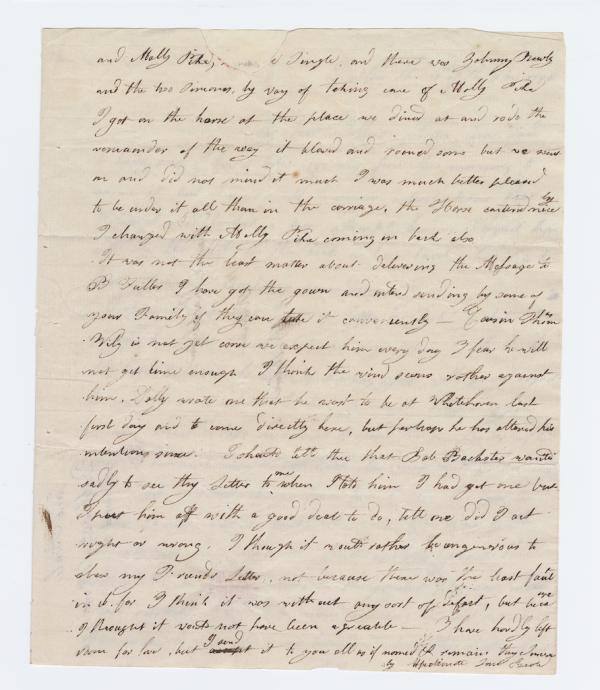 and Molly Pike, Single, and there was Johnny Newby
and the two Simons, by way of taking care of Molly Pike
I got on the horse at the place we dined at and rode the
remainder of the way it blowed and rained some but we went
on and did not mind it much I was much better pleased
to be under it all than in the carriage, the Horse cantered nicely
I changed with Molly Pike coming in back also
It was not the least matter about delivering the Message to
B Fuller I have got the gown and intend sending by some of
your Family if they can take it conveniently — Cousin Thos
Wily is not yet come we expect him every day I fear he will
not get time enough I think the wind seems rather against
him, Dolly wrote me that he was to be at Whitehaven last
first day and to come directly here, but perhaps he has altered his
intentions since. I should tell thee that Bob Backster wanted
sadly to see thy Letter to me when I told him I had got one but
I put him off with a good deal to do, tell me did I act
right or wrong, I thought it would rather be ungenerous to
shew my Friends Letter, not because there was the least fault
in it for I think it was without any sort of defect, but because
I thought it would not have been agreeable — I have hardly left
room for love, but I send it to you all as if named & remain thy sincere